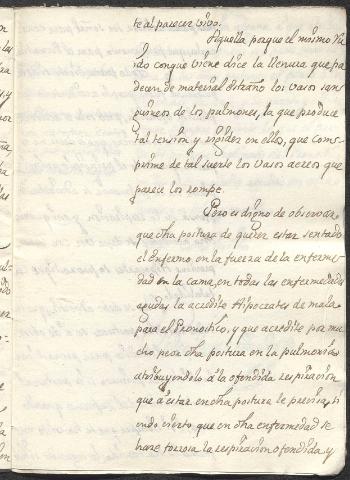 te al parecer vivo.
Aquella porque el mismo Ru
ido conque viene dice la llenura que pa
decen de material estraño los vasos san
guineos de los pulmones, la que produce
tal tension y rigidez en ellos, que com=
prime de tal suerte los vasos aereos que
parece los rompe.
Pero es digno de observar,
que dha postura de querer estar sentado
el Enfermo en la fuerza de la enferme
dad en la cama, en todas las enfermedades
agudas la acredite Hipocrates de mala
para el Pronostico, y que acredite por mu
cho peor dha postura en la pulmonia,
atribuyendolo á la ofendida respiracion
que á estar en dha postura le precisa, si
endo cierto que en dha enfermedad se
hace forzosa la respiracion ofendida, y